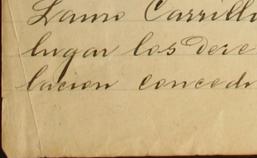 Lauro Carrill
lugar los dere
lacion concedi